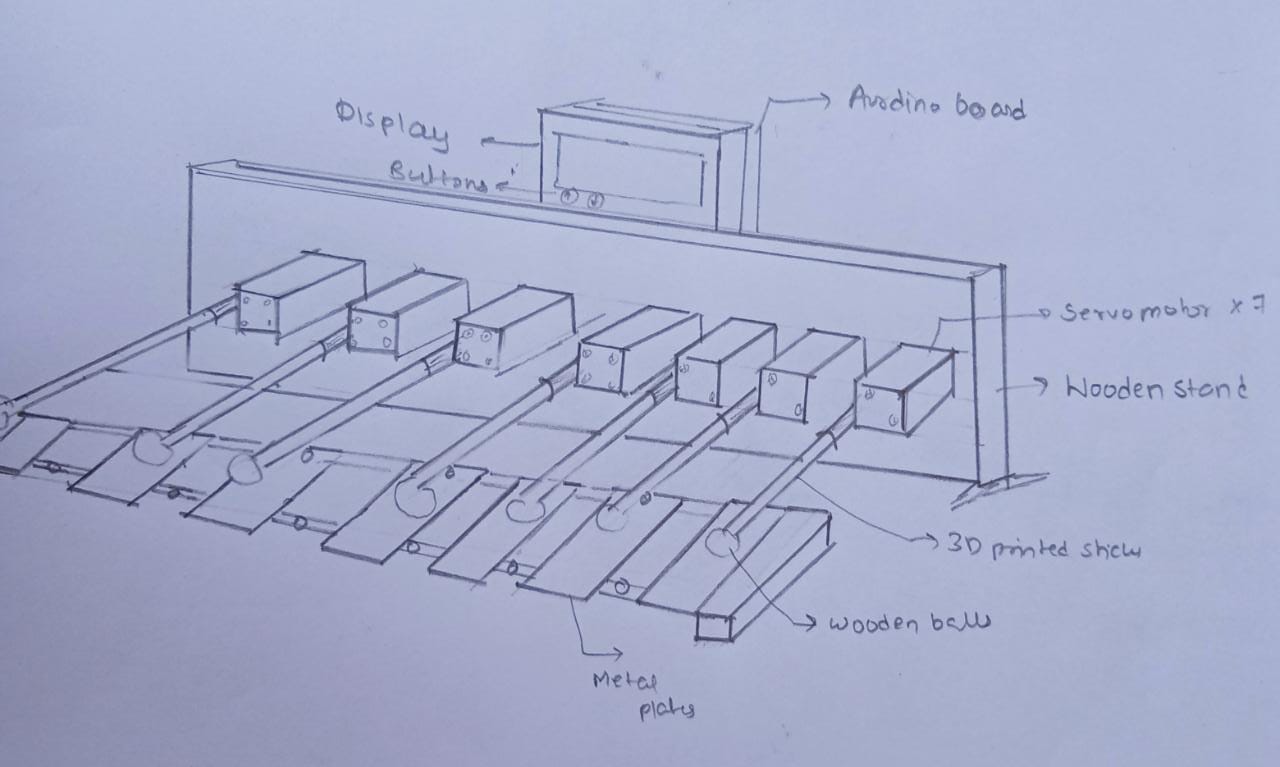 Display
Buttons
Ardino board
Servomotor x 7
Wooden stand
3D printed sticks
wooden balls
Metal
plates